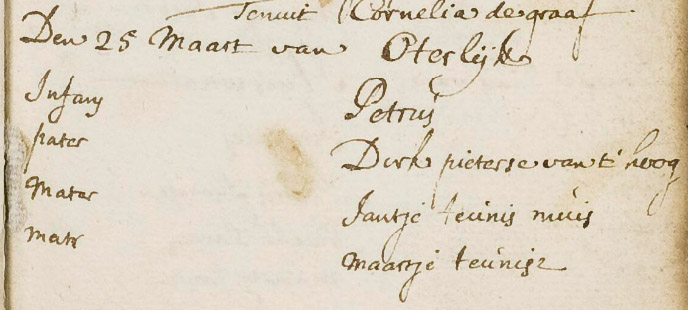 Tenuit Cornelia de graaf
Den 25 Maart van Oterlijk
Infans Petrus
pater Dirk pieterse van t' hoog
Mater Jantje teunis muis
matr maartje teunisz